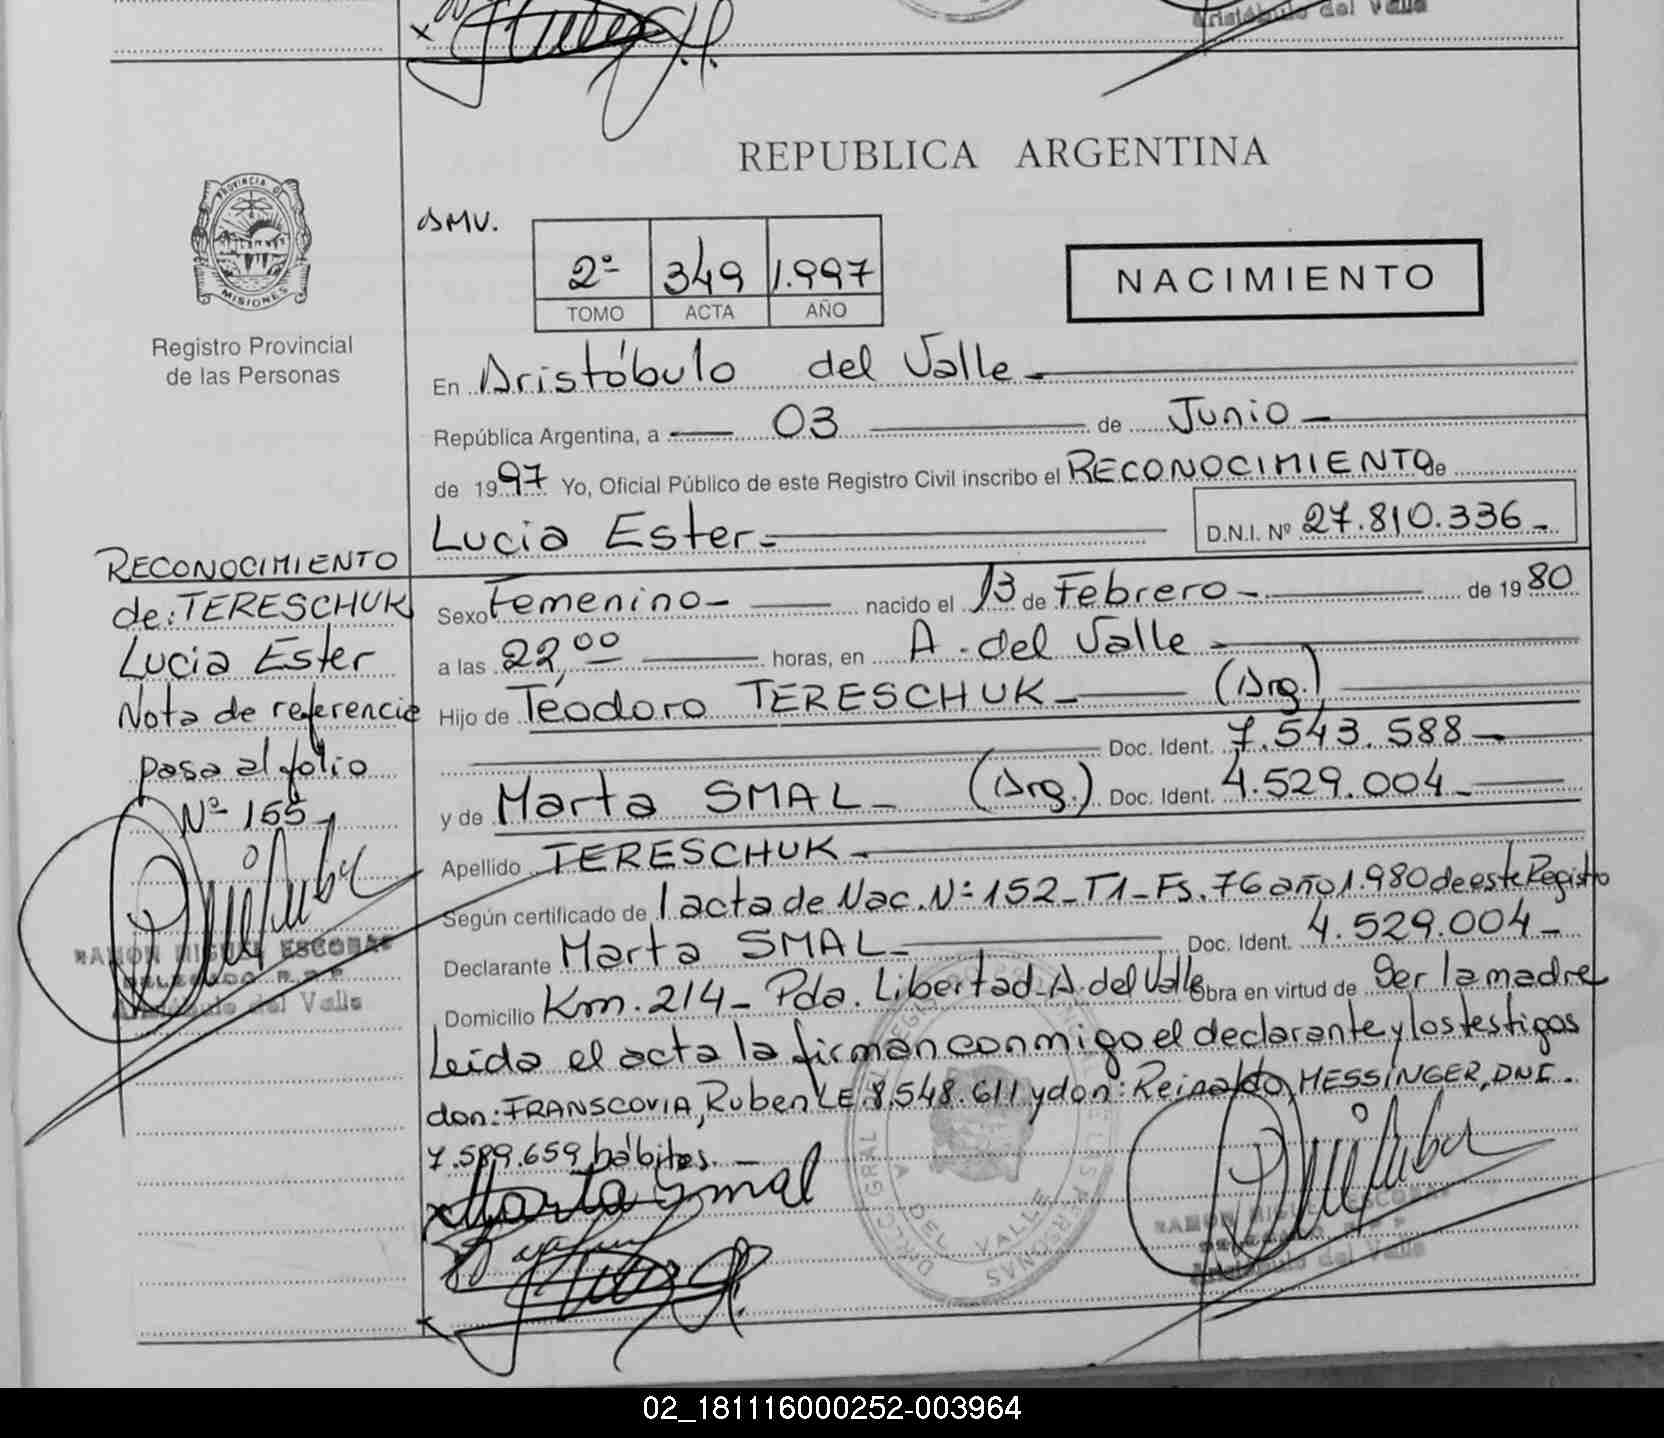 Aristóbulo del Valle
REPUBLICA ARGENTINA
PROVINCIA DE
MISIONES
Registro Provincial
de las Personas
SMV.
2º 349 1.997
TOMO ACTA AÑO
NACIMIENTO
En Aristóbulo del Valle
República Argentina, a 03 de Junio
de 1997 Yo, Oficial Público de este Registro Civil inscribo el RECONOCIMIENTO de
Lucia Ester D.N.I. Nº 27.810.336
RECONOCIMIENTO
de: TERESCHUK
Lucia Ester
Nota de referencia
pasa al folio
Nº 155
RAMON MIGUEL ESCOBAR
DELEGADO R.P.P
Aristóbulo del Valle
Sexo Femenino nacido el 13 de Febrero de 1980
a las 22,00 horas, en A. del Valle
Hijo de Teodoro TERESCHUK (Arg.)
Doc. Ident. 7.543.588
y de Marta SMAL (Arg.) Doc. Ident. 4.529.004
Apellido TERESCHUK
Según certificado de 1 acta de Nac. Nº 152_T1_Fs. 76 año 1.980 de este Registro
Declarante Marta SMAL Doc. Ident. 4.529.004
Domicilio Km. 214_ Pda. Libertad_A. del Valle Obra en virtud de Ser la madre
Leída el acta la firman conmigo el declarante y los testigos
don: FRANSCOVIA, Ruben LE. 8.548.611 y don: Reinaldo MESSINGER, DNI.
7.589.659 hábites.
x Marta Smal
A DEL VALLE
RAMON MIGUEL ESCOBAR
DELEGADO R.P.P
Aristóbulo del Valle
02_181116000252-003964